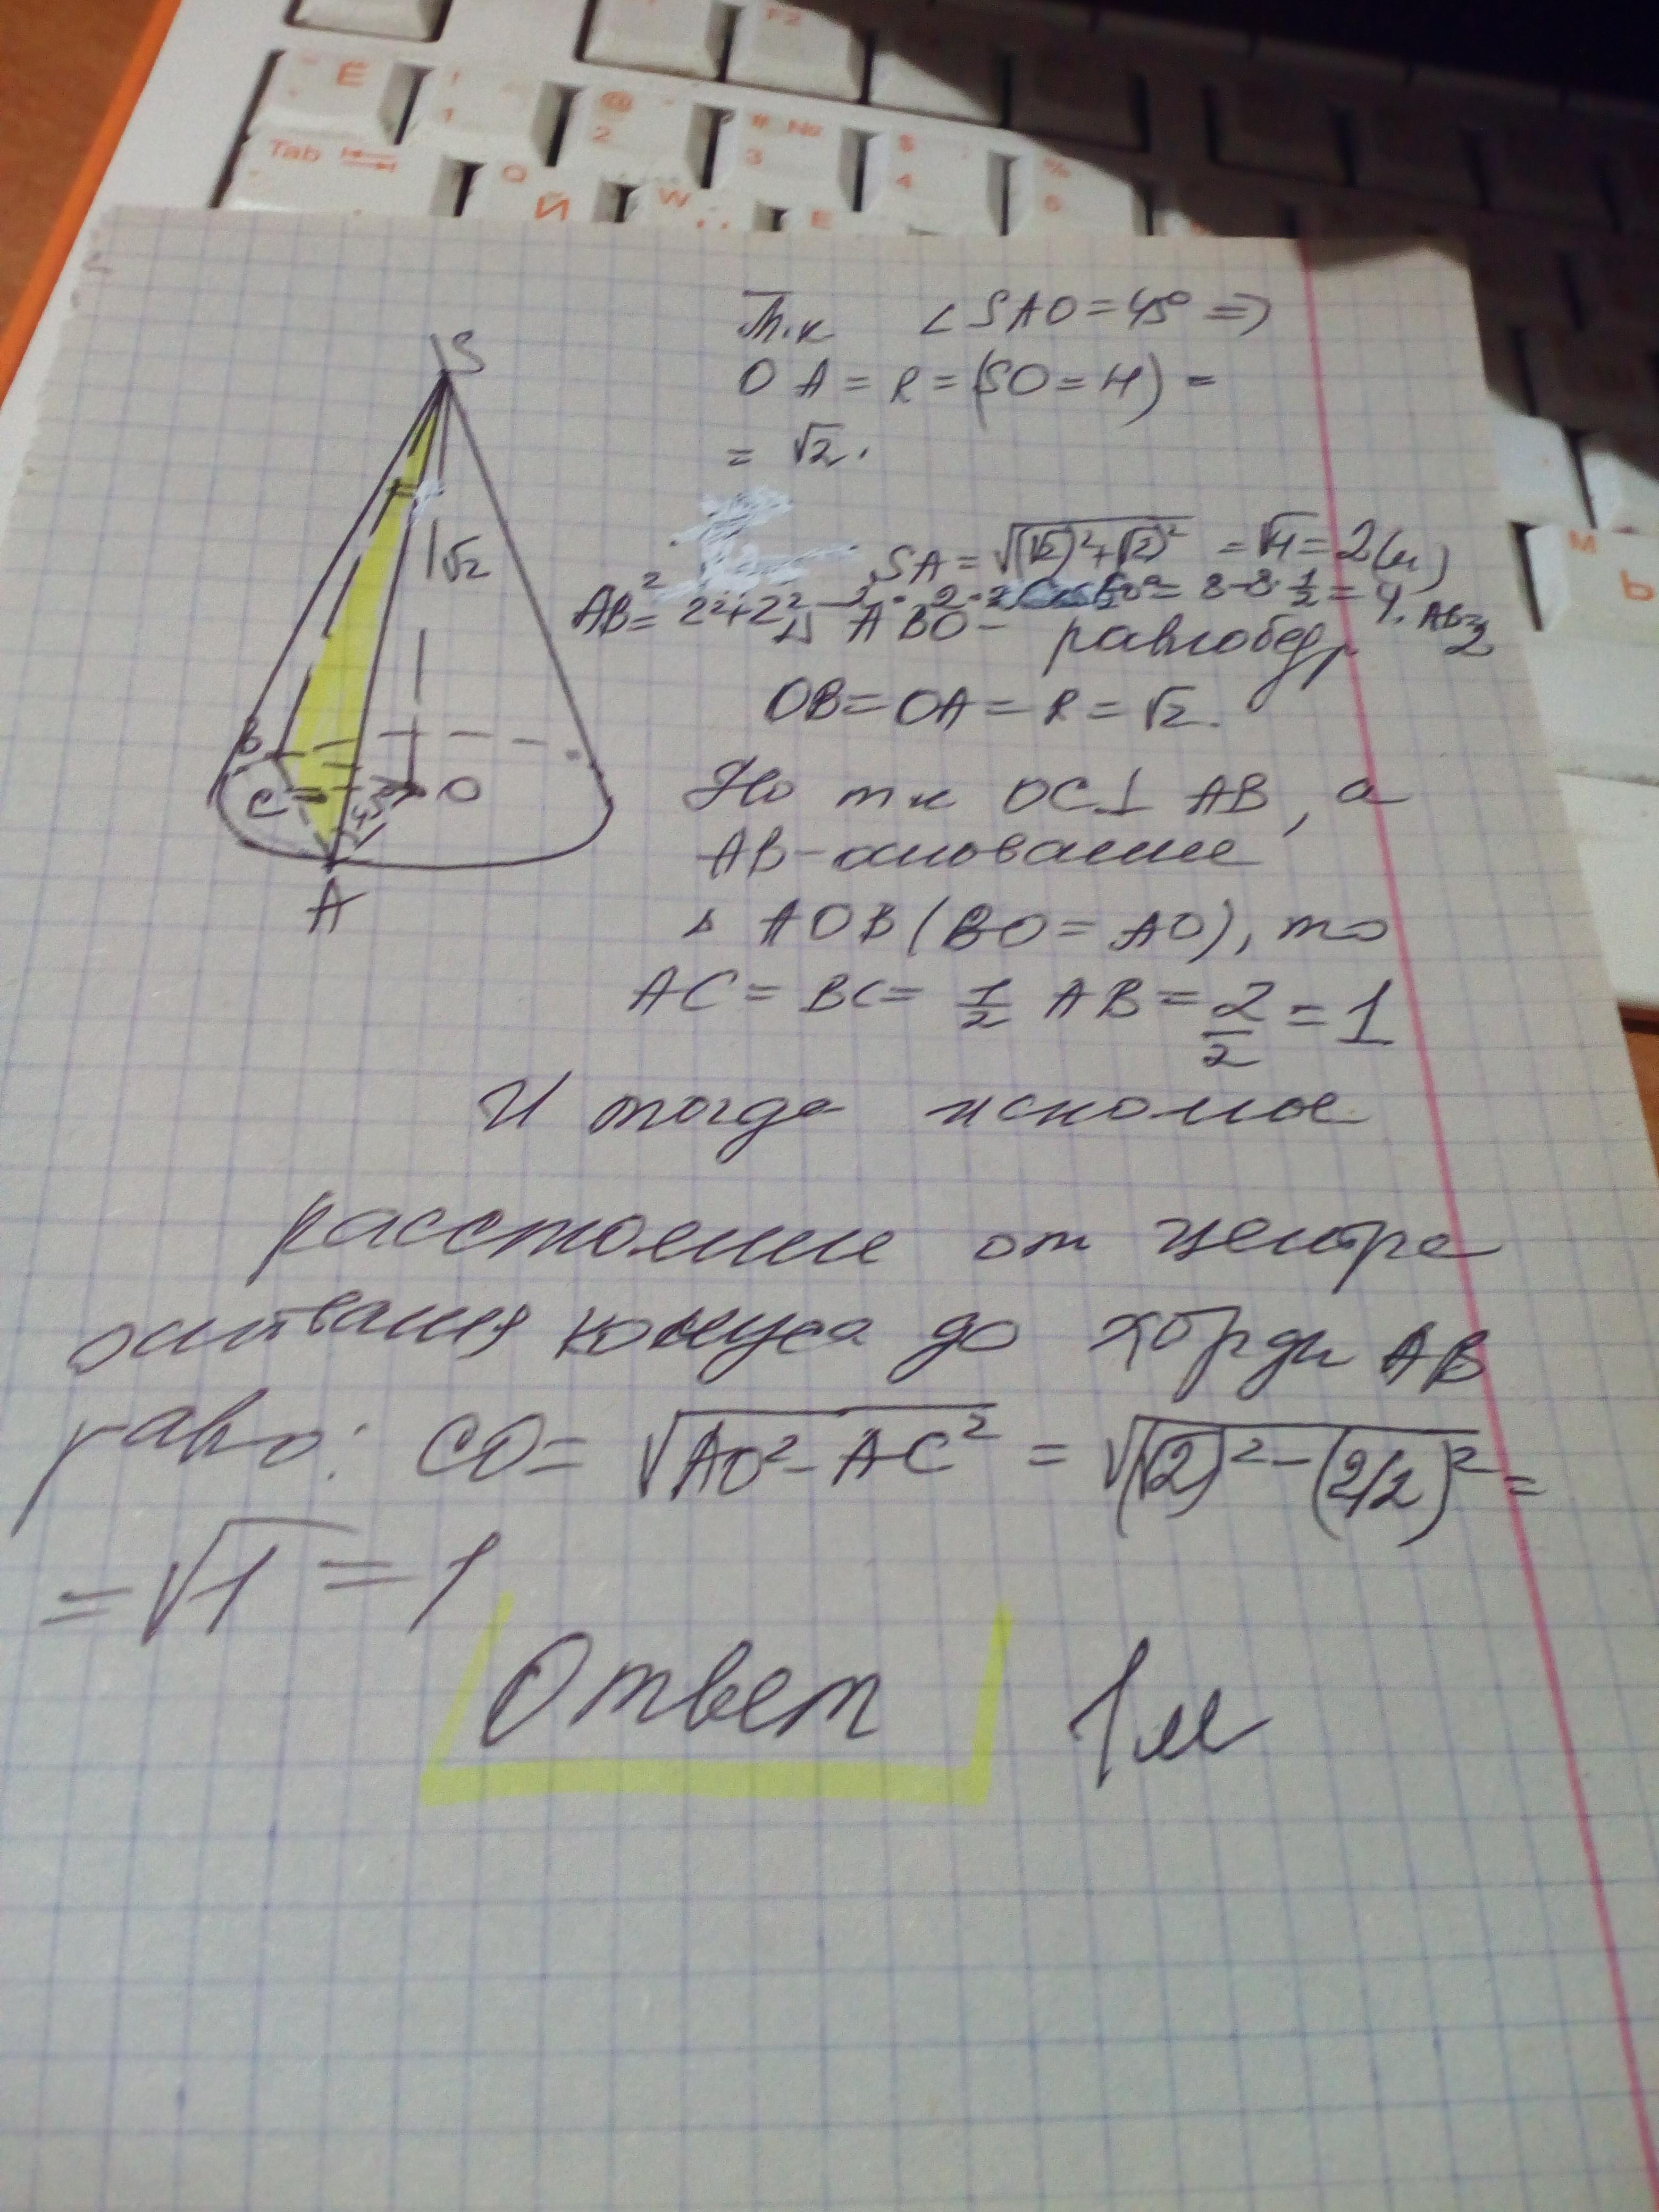 F2
Ё ! 1 @ 2 # № 3 $ ; 4 % 5
Tab Q Й W E
М Ь
S
√2
B
C 45° O
A
Т.к ∠SAO = 45° ⇒
OA = R = (SO = H) =
= √2.
SA = √((√2)²+(√2)²) = √4 = 2(м)
AB² = 2²+2²-2·2·2 Cos60° = 8-8·1/2 = 4. AB=2
Δ ABO - равнобедр
OB = OA = R = √2.
Но тк OC⊥ AB, а
AB-основание
Δ AOB (BO = AO), то
AC = BC = 1/2 AB = 2/2 = 1
И тогда искомое
расстояние от центра
основания конуса до хорды AB
равно: CO = √(AO²-AC²) = √((√2)²-(2/2)²) =
= √1 = 1
Ответ 1м